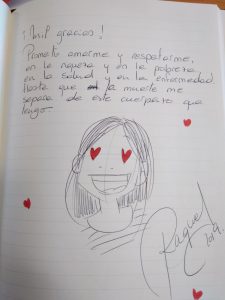 ¡Mil gracias!
Prometo amarme y respetarme,
en la riqueza y en la pobreza
en la salud y en la enfermedad.
Hasta que la muerte me
separe de este cuerpazo que
tengo.
Raquel
2019.